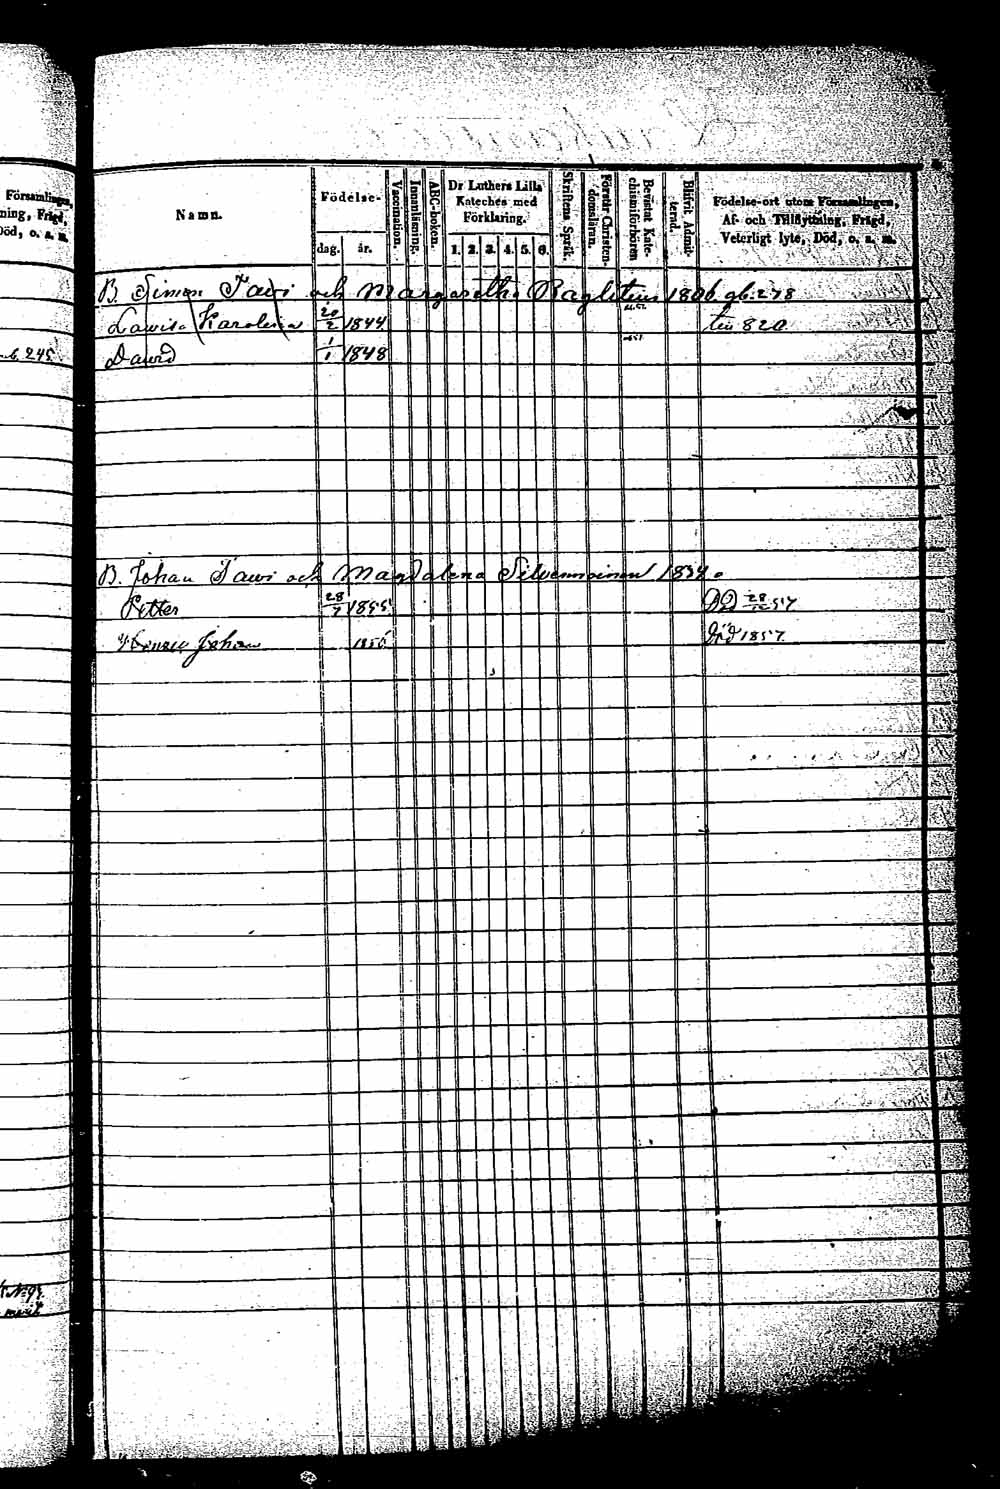 Församlingen,
ning, Frägd,
Död, o. s. m.
Namn.
Födelse-
dag. år.
Vaccination.
Innanläsning.
ABC-boken.
Dr Luthers Lilla
Kateches med
Förklaring.
1. 2. 3. 4. 5. 6.
Skriftens Språk.
Förstå Christen-
domsläran.
Bevistat Kate-
chismiförhören
Blifvit Admit-
terad.
Födelse-ort utom Församlingen,
Af- och Tillflyttning, Frägd,
Veterligt lyte, Död, o. s. m.
B. Simon Tawi och Margaretha 1806. gb. 278
Lawisa Karolina 20/2 1844 820
245. Dawid 1/1 1848
B. Johan Tawi och Magdalena Silvennoinen 1834.
Petter 28/7 1855 Död 28/12 57
Johan 1856 Död 1857